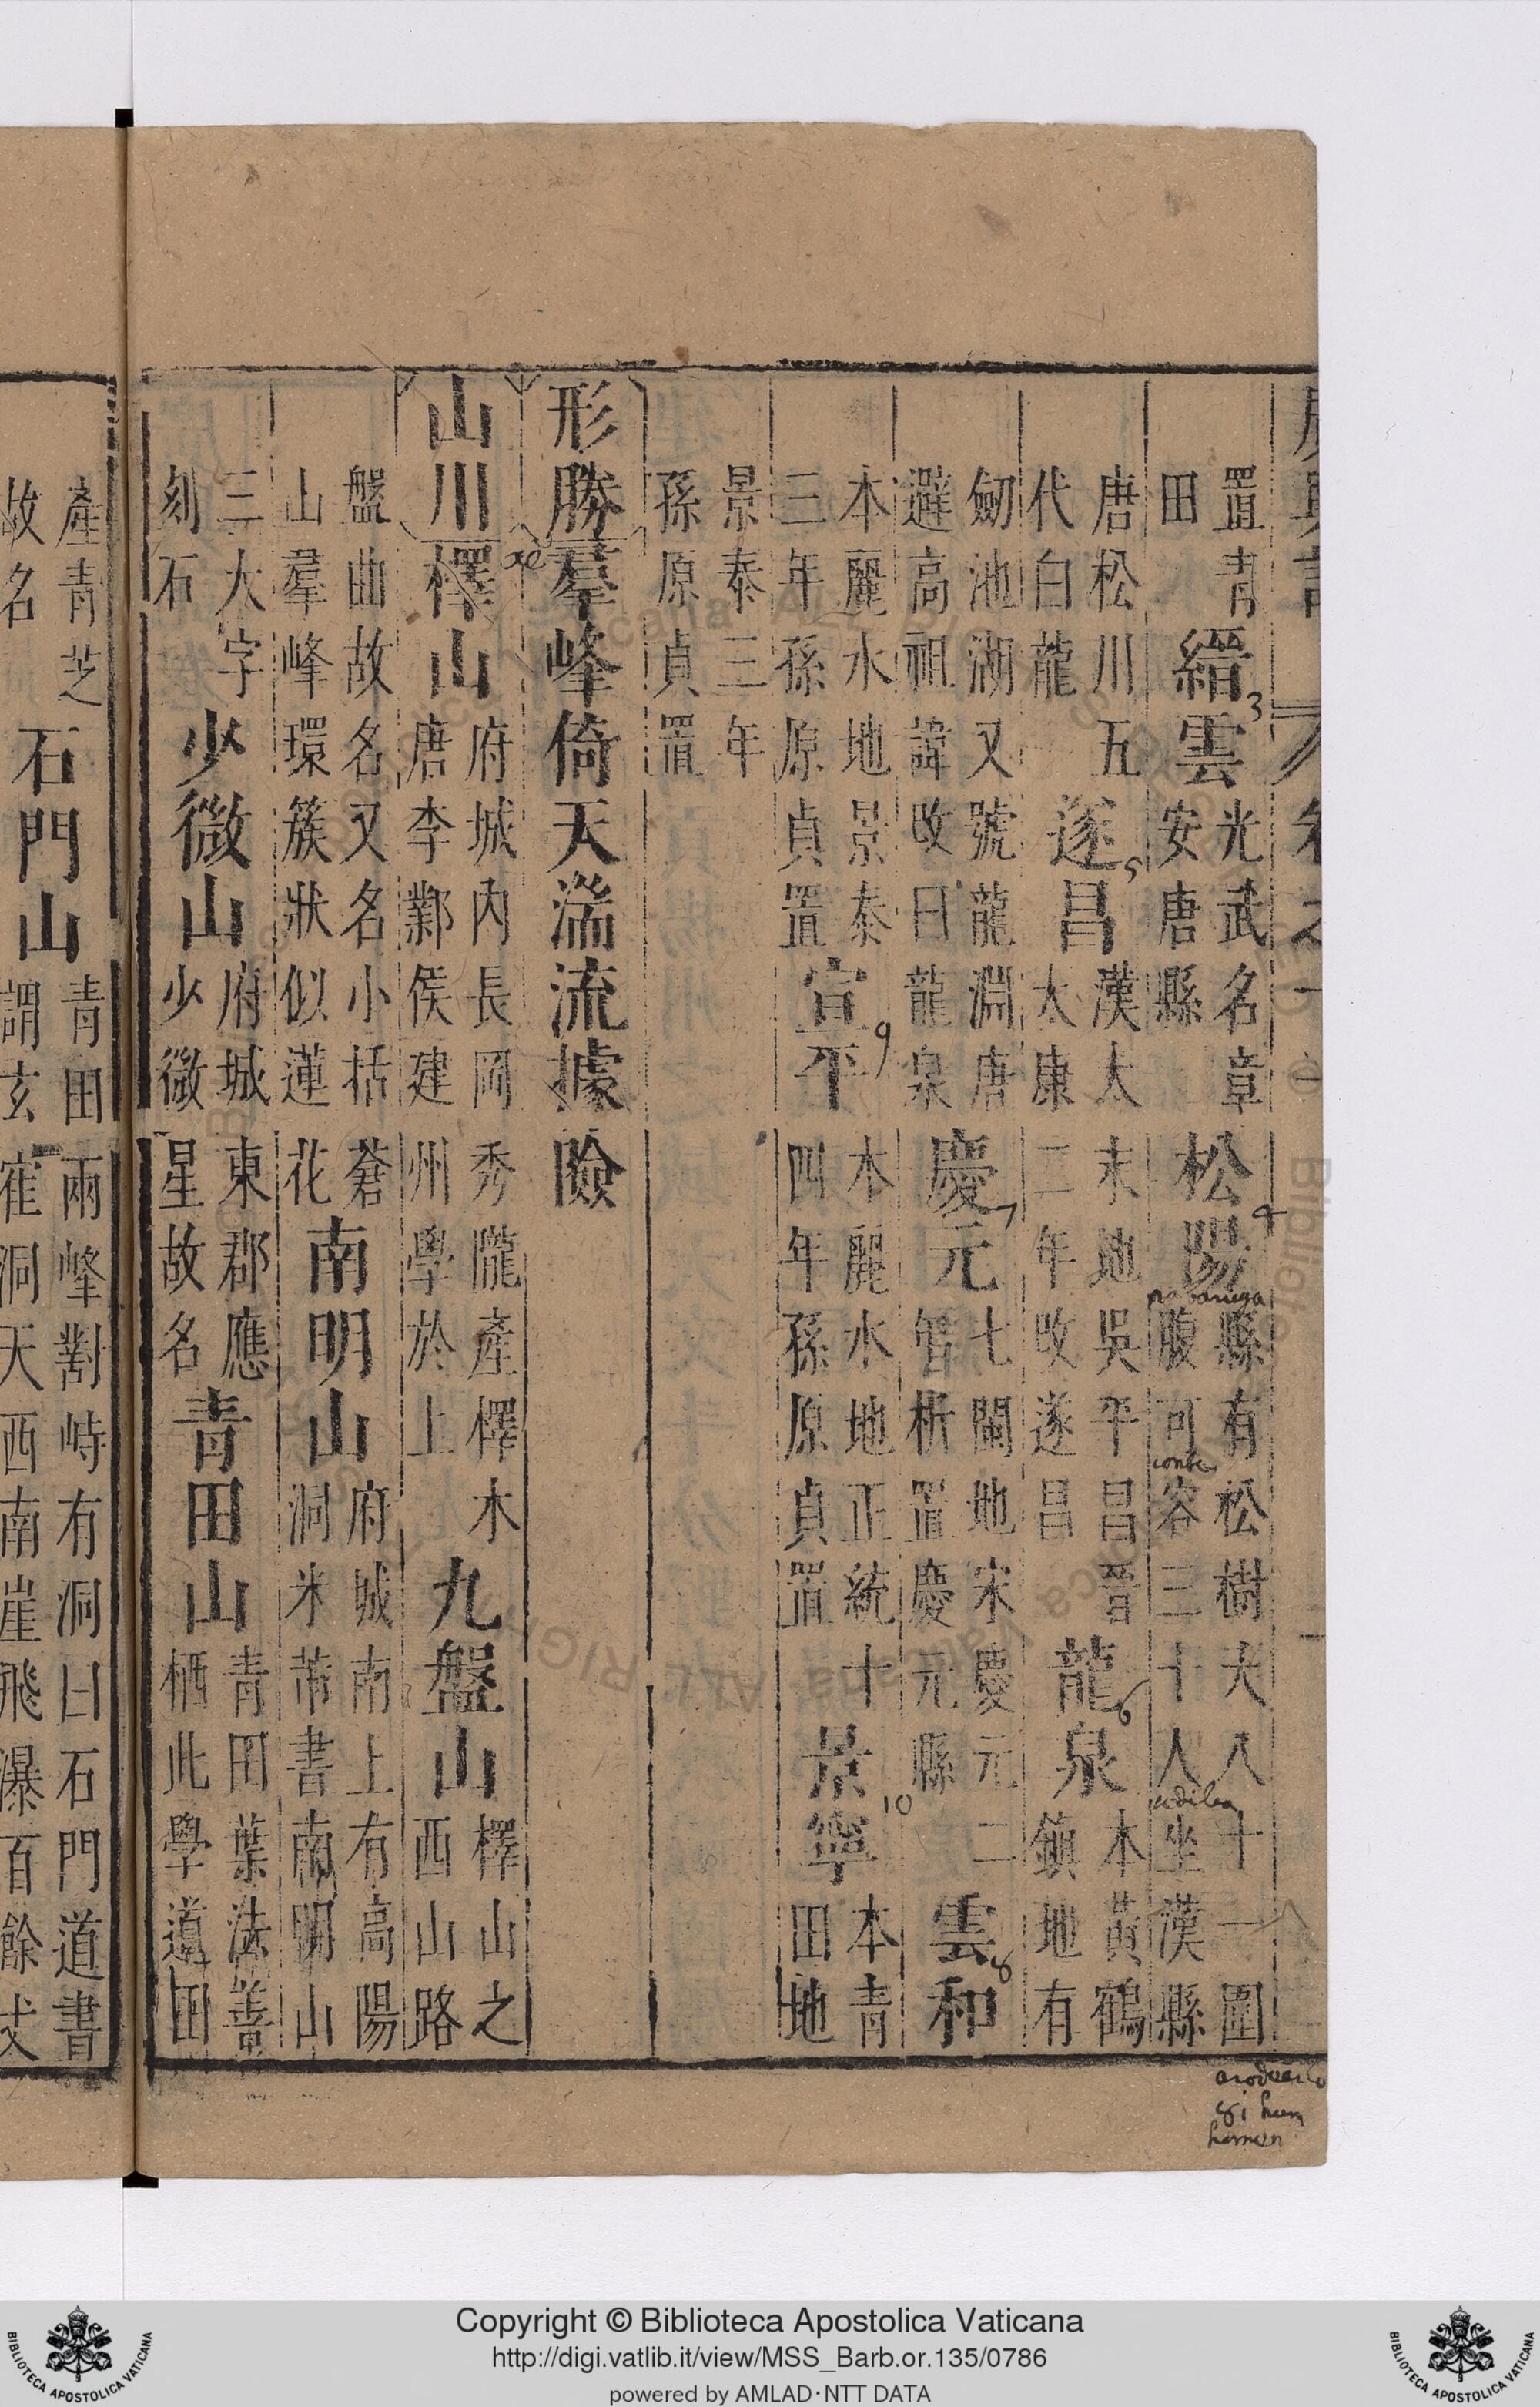 置青田縉雲光武名章安唐縣松陽縣有松樹大八十一圍腹可容三十人坐漢縣
唐松川五代白龍遂昌漢太末地吳平昌晉太康二年改遂昌龍泉本黃鶴鎮地有
劒池湖又號龍淵唐避高祖諱改曰龍泉慶元七閩地宋慶元二智析置慶元縣雲和
本麗水地景泰三年孫原貞置宣平本麗水地正統十四年孫原貞置景寧本青田地
景泰三年孫原貞置
形勝羣峰倚天湍流據險
山川檡山府城內長岡秀隴產檡木唐李鄴侯建州學於上九盤山檡山之西山路
盤曲故名又名小括蒼山羣峰環簇狀似蓮花南明山府城南上有高陽洞米芾書南明山
三大字刻石少微山府城東郡應少微星故名青田山青田葉法善栖此學道田
產青芝故名石門山青田兩峰對峙有洞曰石門道書謂玄寉洞天西南崖飛瀑百餘丈
3
4
5
6
7
8
9
10
Copyright © Biblioteca Apostolica Vaticana
http://digi.vatlib.it/view/MSS_Barb.or.135/0786
powered by AMLAD·NTT DATA
BIBLIOTECA APOSTOLICA VATICANA
BIBLIOTECA APOSTOLICA VATICANA